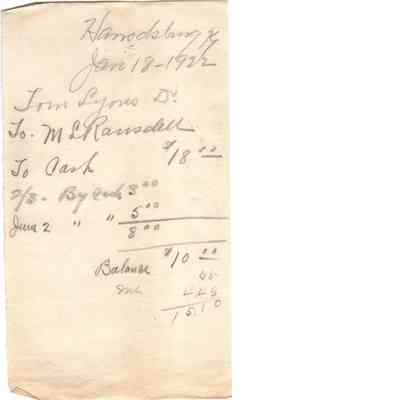 Harrodsburg Ky
Jan 18-1922
Tom Lyons Dr.
To. M L Ransdell
To Cash $18 00
2/8 - By Cash 3 00
June 2 " " 5 00
8 00
Balance $10 00
15.10